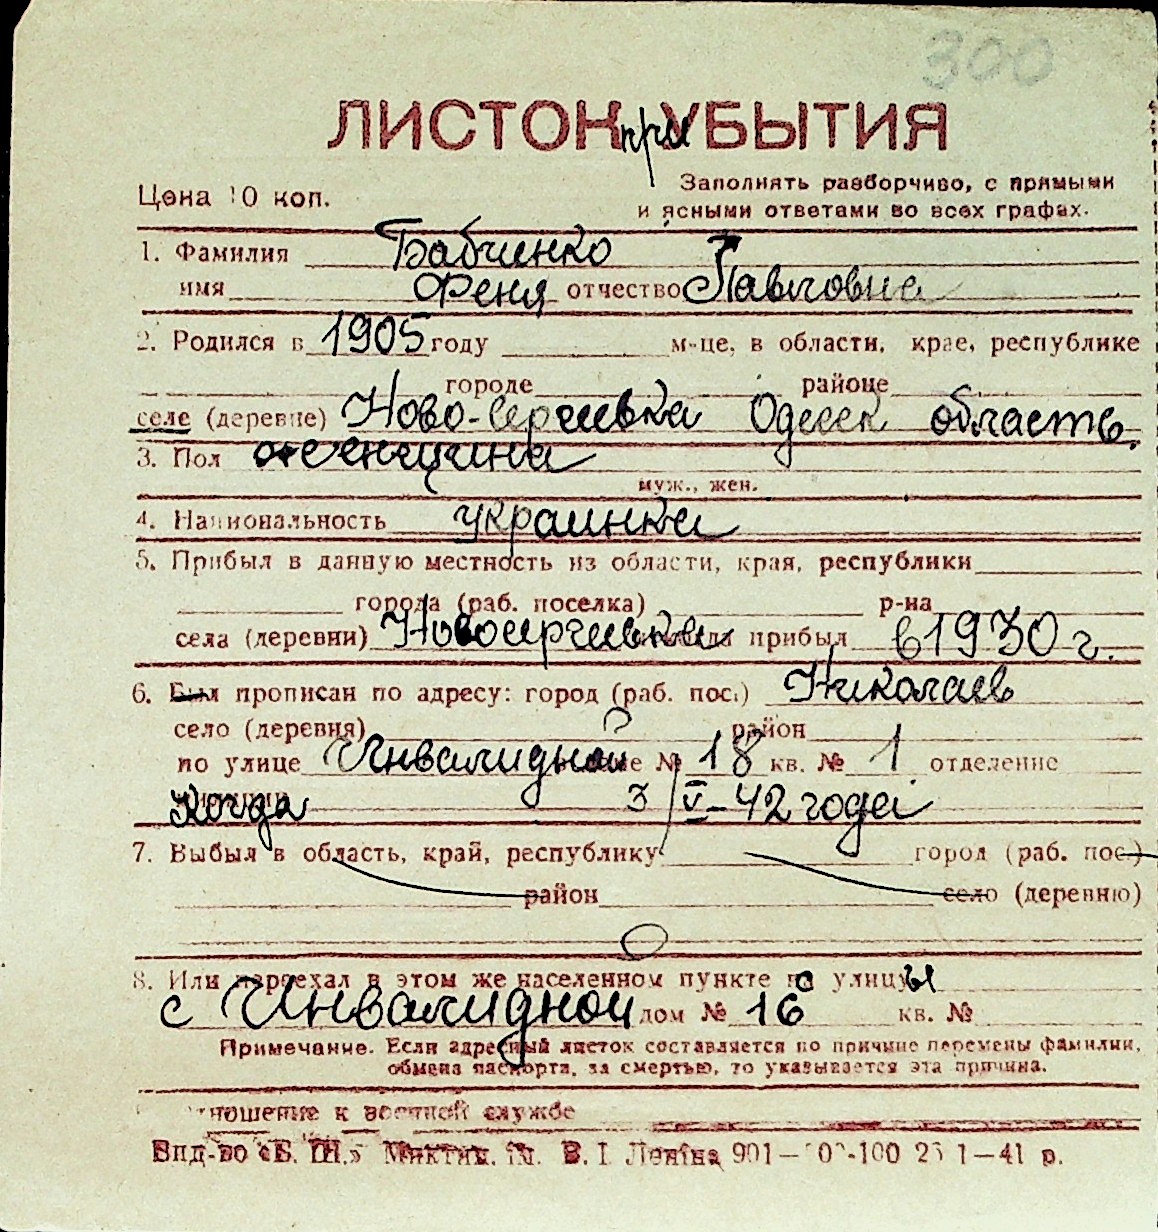 300
ЛИСТОК при УБЫТИЯ
Цена 10 коп.
Заполнять разборчиво, с прямыми
и ясными ответами во всех графах.
1. Фамилия Бабченко
имя Феня отчество Павловна
2. Родился в 1905 году м-це, в области, крае, республике
городе районе
селе (деревне) Ново-Сергеевка Одесск область.
3. Пол женщина
муж., жен.
4. Национальность украинка
5. Прибыл в данную местность из области, края, республики
города (раб. поселка) р-на
села (деревни) Новосергеевка прибыл в 1930 г.
6. Был прописан по адресу: город (раб. пос.) Николаев
село (деревня) район
по улице Инвалидной № 18 кв. № 1 отделение
Когда 3/V-42 года
7. Выбыл в область, край, республику город (раб. пос.)
район село (деревню)
8. Или переехал в этом же населенном пункте с улицы
с Инвалидной дом № 16 кв. №
Примечание. Если адресный листок составляется по причине перемены фамилии,
обмена паспорта, за смертью, то указывается эта причина.
отношение к военной службе
Вид-во «Б. Ш.» В. І. Леніна 901— 100 1—41 р.